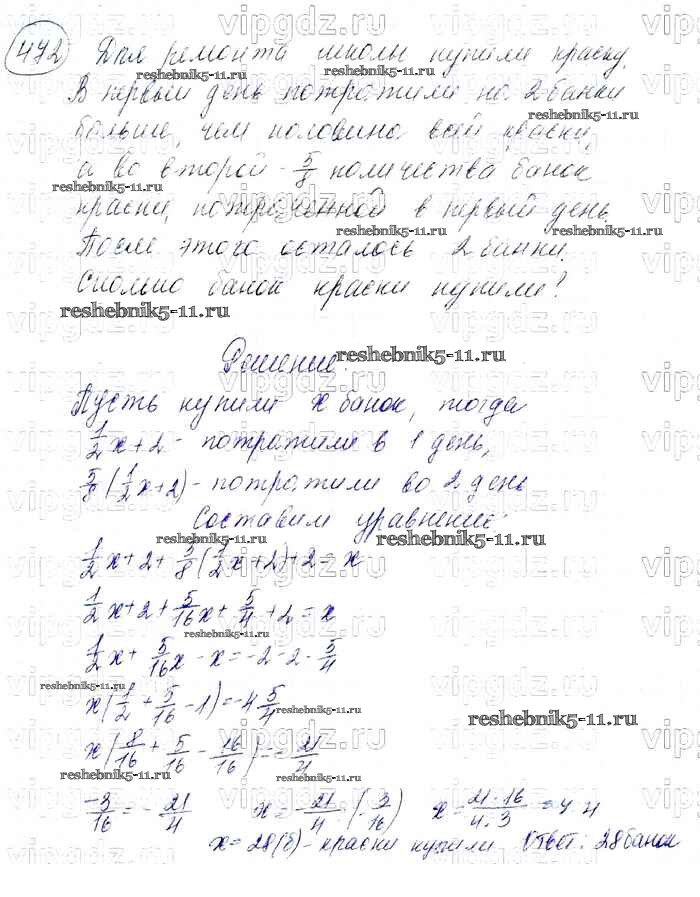 472 Для ремонта школы купили краску.
В первый день потратили на 2 банки
больше, чем половина всей краски,
а во второй - 5/8 количества банок
краски, потраченной в первый день.
После этого осталось 2 банки.
Сколько банок краски купили?
Решение.
Пусть купили x банок, тогда
1/2 x + 2 - потратили в 1 день,
5/8 (1/2 x + 2) - потратили во 2 день
Составим уравнение:
1/2 x + 2 + 5/8 (1/2 x + 2) + 2 = x
1/2 x + 2 + 5/16 x + 5/4 + 2 = x
1/2 x + 5/16 x - x = -2 - 2 - 5/4
x (1/2 + 5/16 - 1) = -4 5/4
x (8/16 + 5/16 - 16/16) = - 21/4
-3/16 = - 21/4 x = - 21/4 : (- 3/16) x = 21·16/4·3 = 7·4
x = 28 (б) - краски купили Ответ: 28 банок
vipgdz.ru
reshebnik5-11.ru